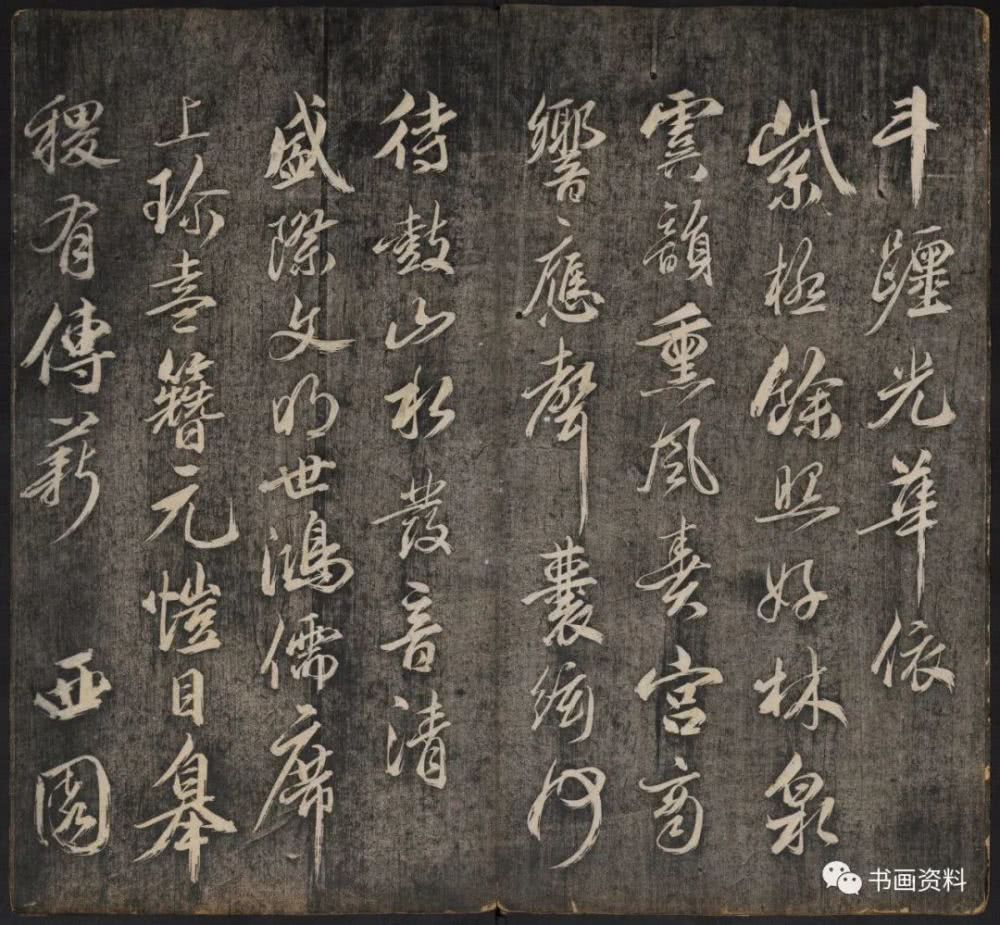 斗躔光華依
紫極餘照好林泉
虞韻熏風奏宮商
響應聲囊絃何
待鼓山水發音清
盛際文明世鴻儒席
上珍盍簪元愷目皋
稷有傳薪 西園
书画资料